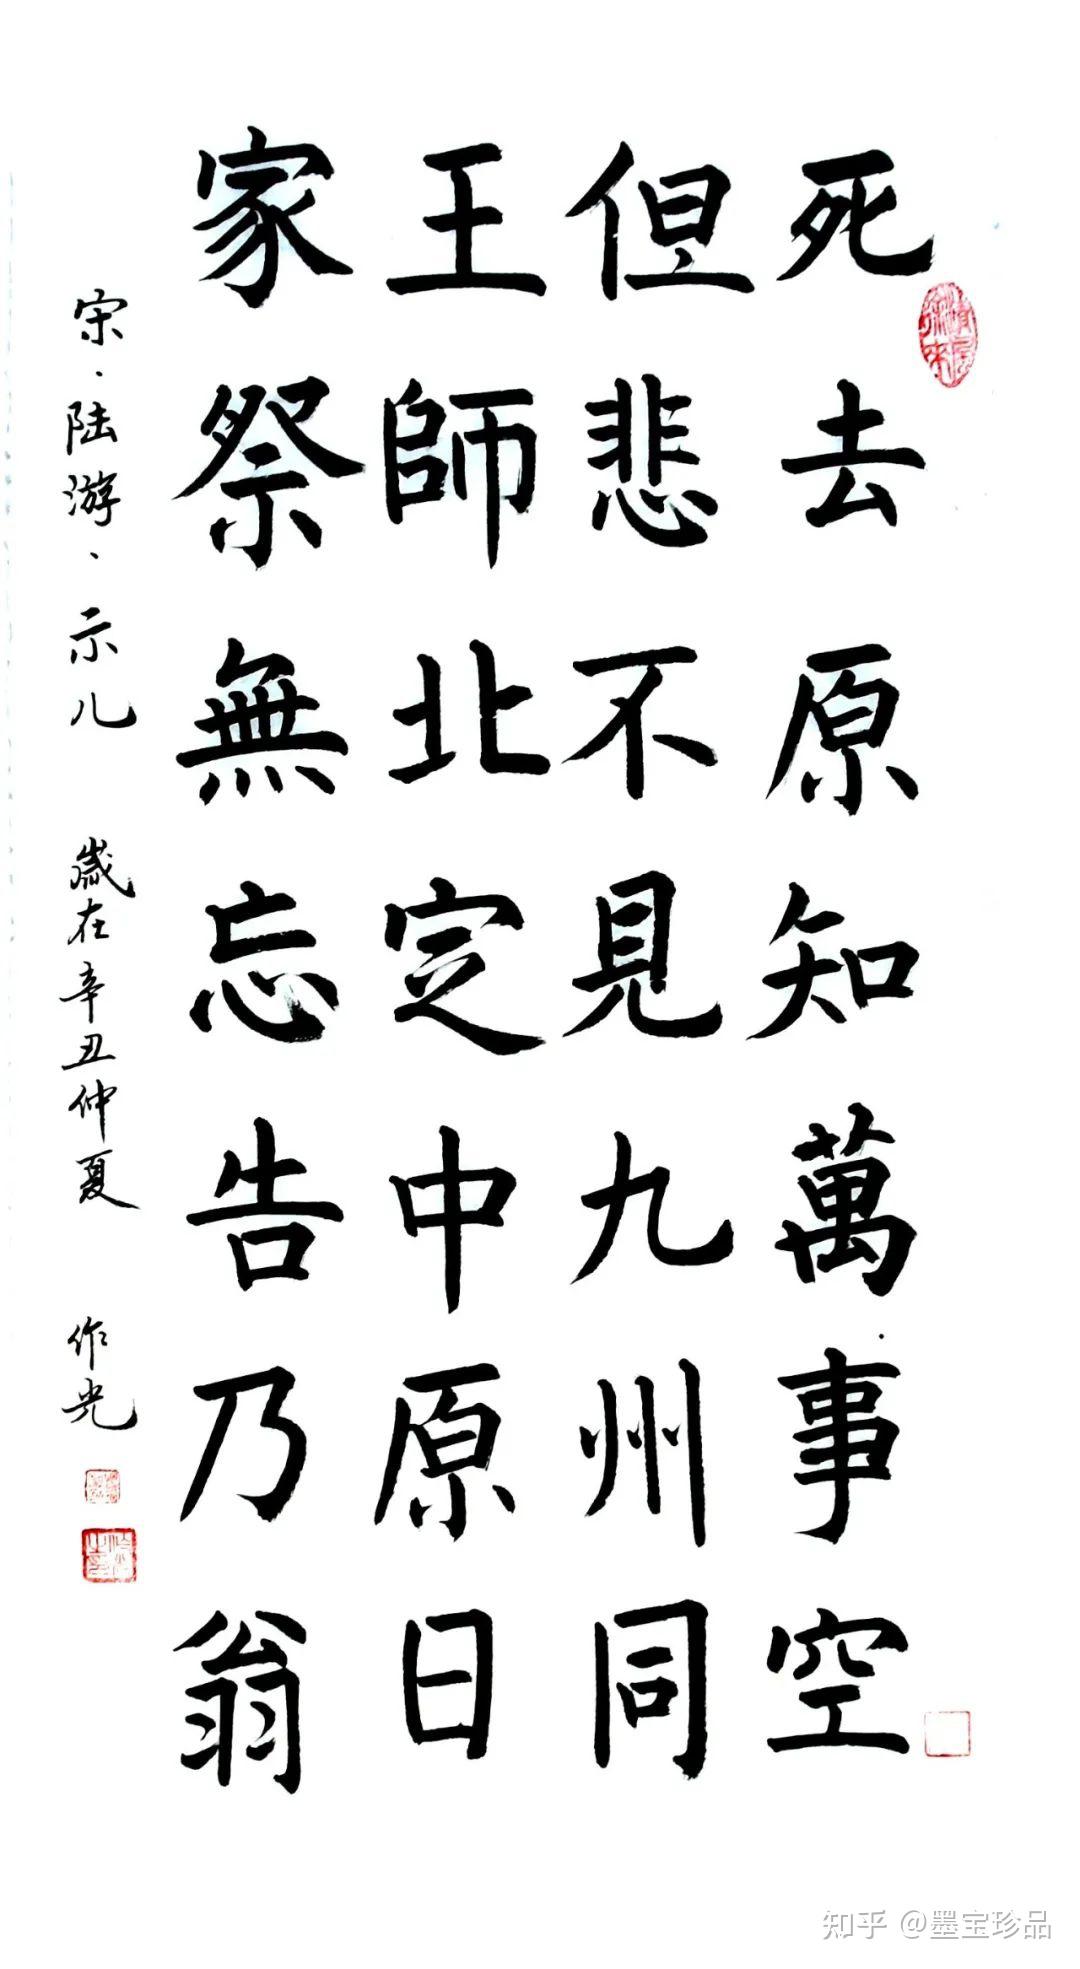 清風徐來
死去原知萬事空
但悲不見九州同
王師北定中原日
家祭無忘告乃翁
宋、陆游、示儿 歲在辛丑仲夏 作光
知乎 @墨宝珍品